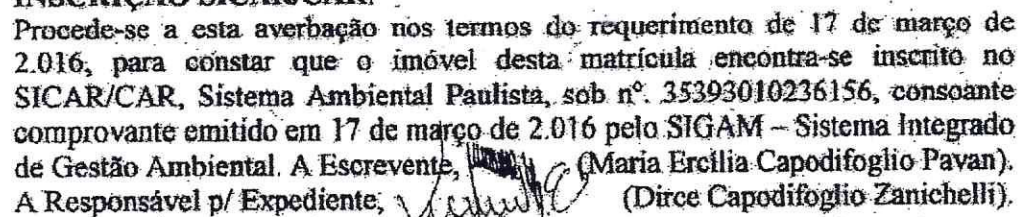 INSCRIÇÃO SICAR/CAR.
Procede-se a esta averbação nos termos do requerimento de 17 de março de
2.016, para constar que o imóvel desta matrícula encontra-se inscrito no
SICAR/CAR, Sistema Ambiental Paulista, sob nº. 35393010236156, consoante
comprovante emitido em 17 de março de 2.016 pelo SIGAM – Sistema Integrado
de Gestão Ambiental. A Escrevente, (Maria Ercília Capodifoglio Pavan).
A Responsável p/ Expediente, (Dirce Capodifoglio Zanichelli).